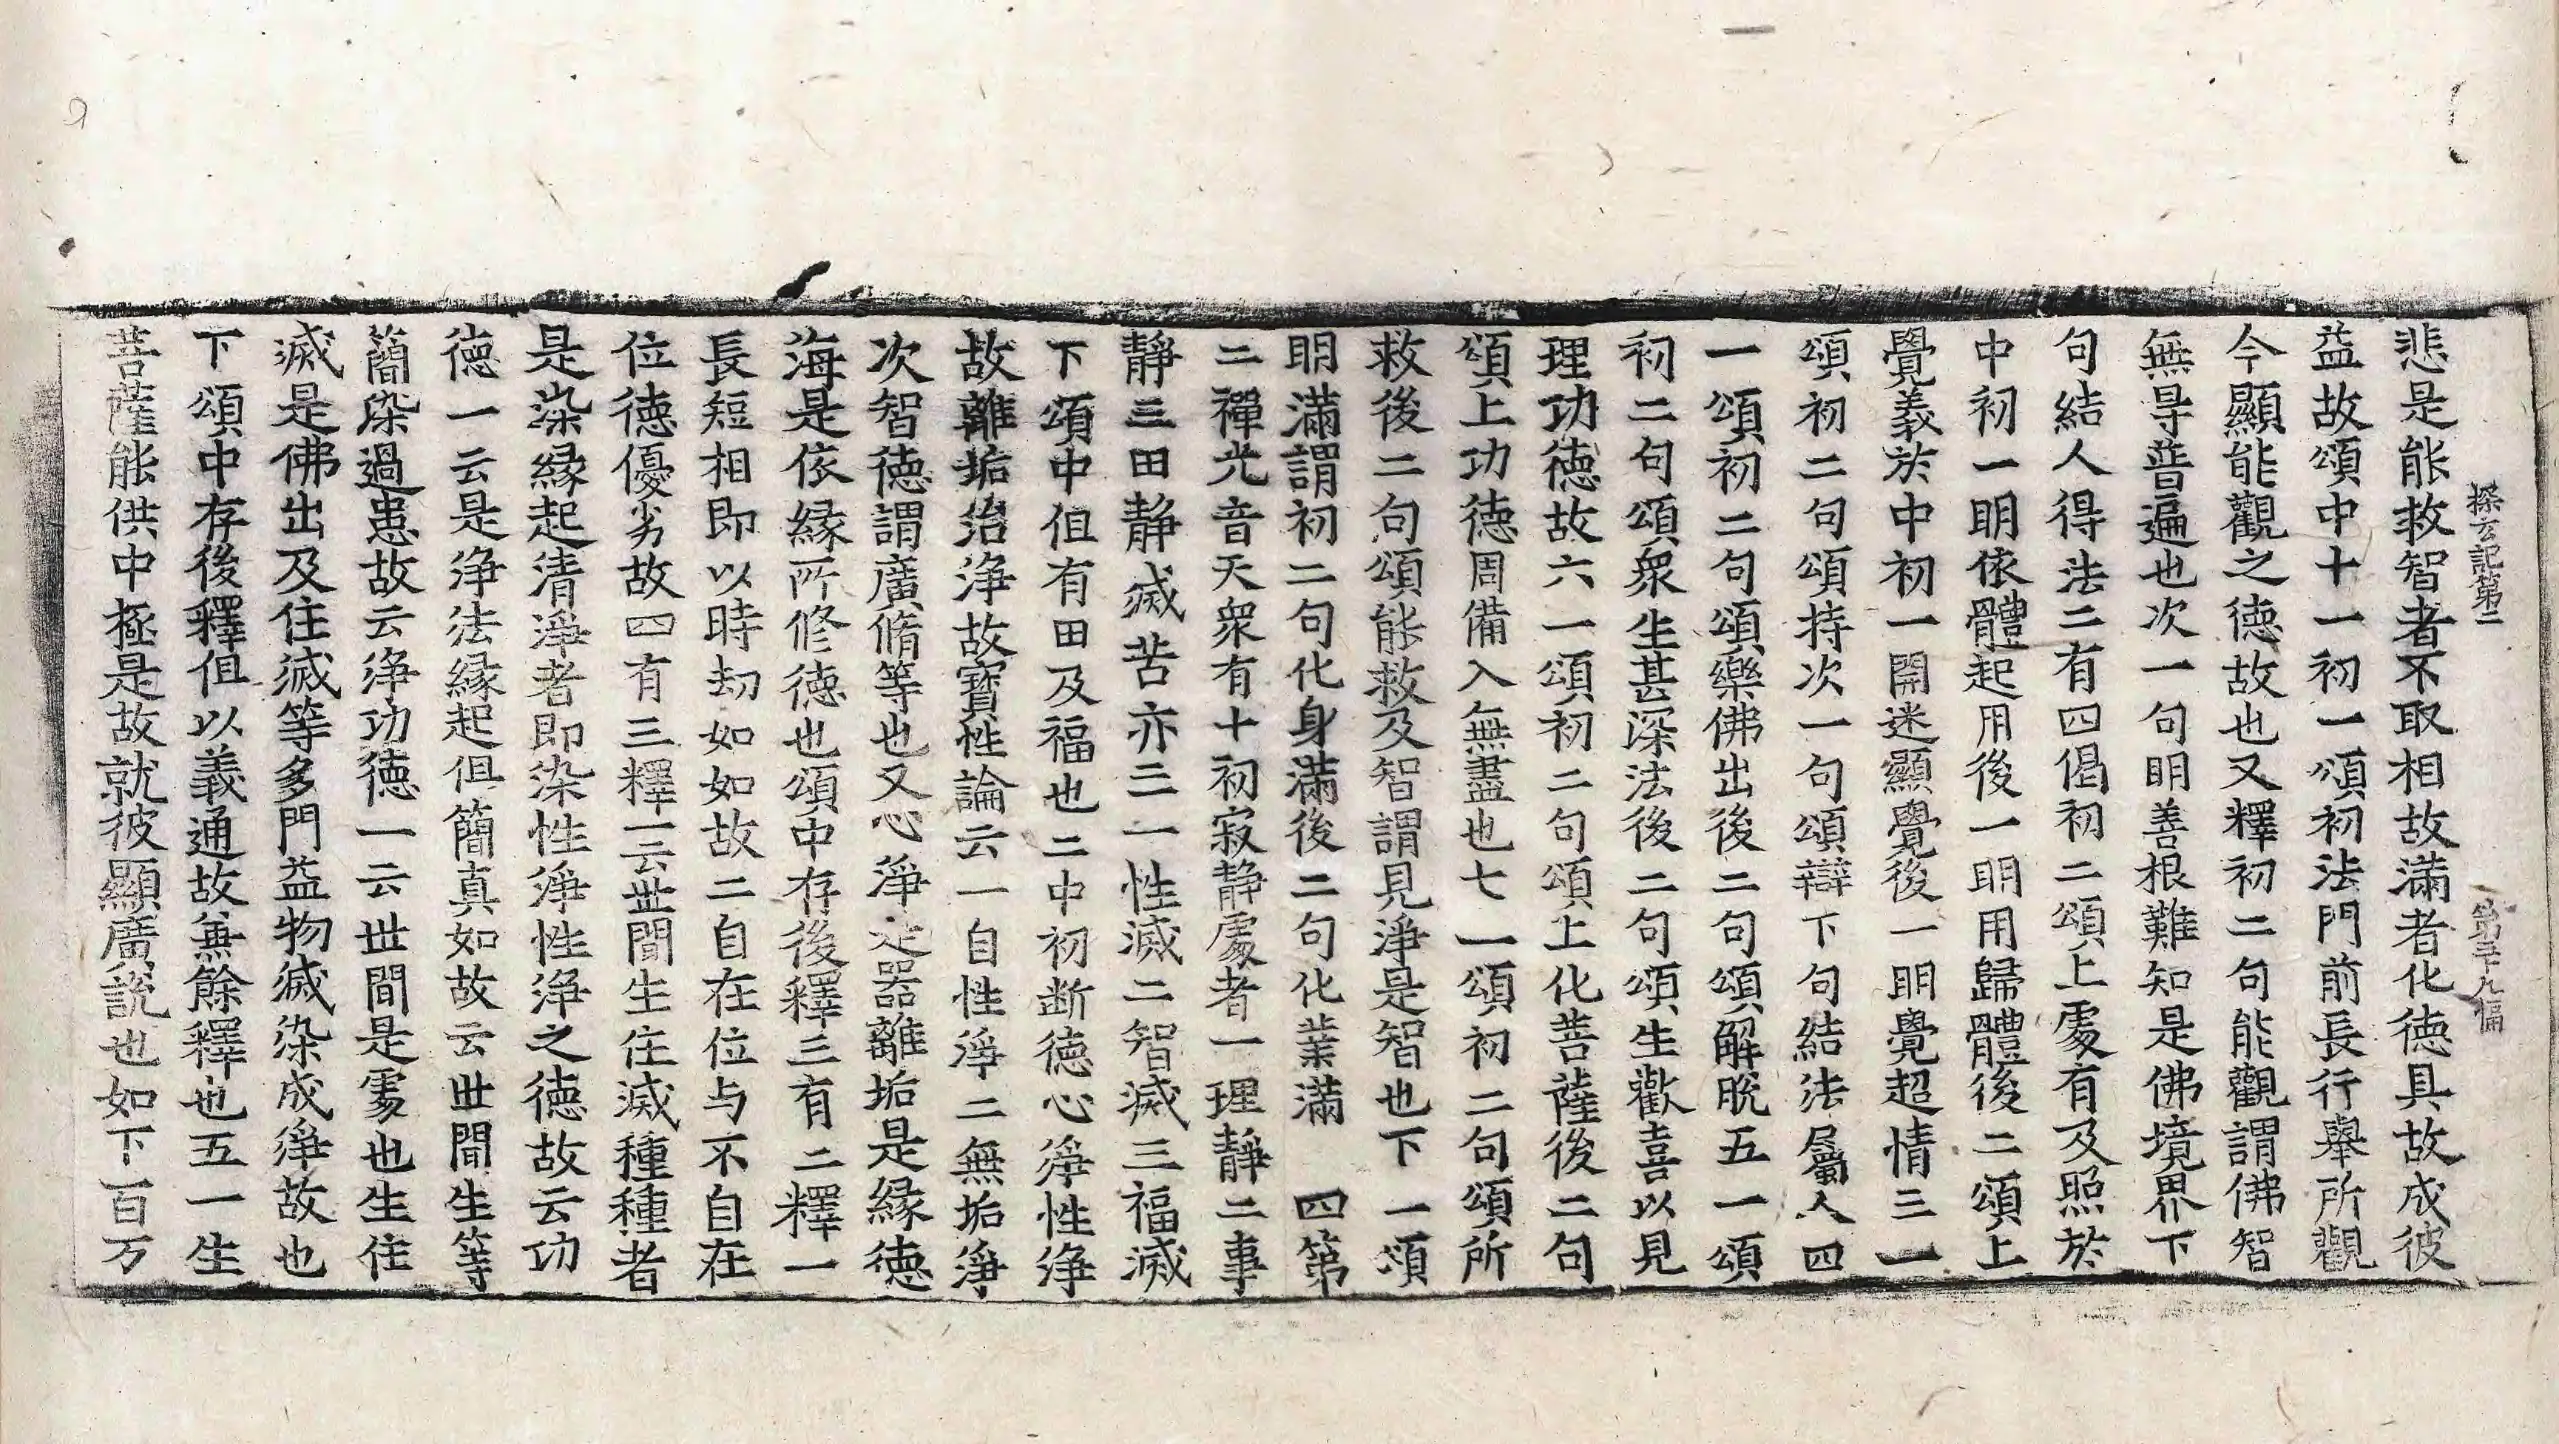 探玄記第二 第三十九幅
悲是能救智者不取相故滿者化德具故成彼
益故頌中十一初一頌初法門前長行舉所觀
今顯能觀之德故也又釋初二句能觀謂佛智
無㝵普遍也次一句明善根難知是佛境界下
句結人得法二有四偈初二頌上處有及照於
中初一明依體起用後一明用歸體後二頌上
覺義於中初一開迷顯覺後一明覺超情三一
頌初二句頌持次一句頌辯下句結法屬人四
一頌初二句頌樂佛出後二句頌解脫五一頌
初二句頌衆生甚深法後二句頌生歡喜以見
理功德故六一頌初二句頌上化菩薩後二句
頌上功德周備入無盡也七一頌初二句頌所
救後二句頌能救及智謂見淨是智也下一頌
明滿謂初二句化身滿後二句化業滿 四第
二禪光音天衆有十初寂静處者一理靜二事
靜三田静滅苦亦三一性滅二智滅三福滅
下頌中但有田及福也二中初断德心淨性淨
故離垢治淨故寶性論云一自性淨二無垢淨
次智德謂廣脩等也又心淨是器離垢是緣德
海是依緣所修德也頌中存後釋三有二釋一
長短相即以時劫如如故二自在位与不自在
位德優劣故四有三釋一云世間生住滅種種者
是染緣起清淨者即染性淨性淨之德故云功
德一云是淨法緣起但簡真如故云世間生等
簡染過患故云淨功德一云世間是處也生住
滅是佛出及住滅等多門益物滅染成淨故也
下頌中存後釋但以義通故無餘釋也五一生
菩薩能供中極是故就彼顯廣說也如下百万